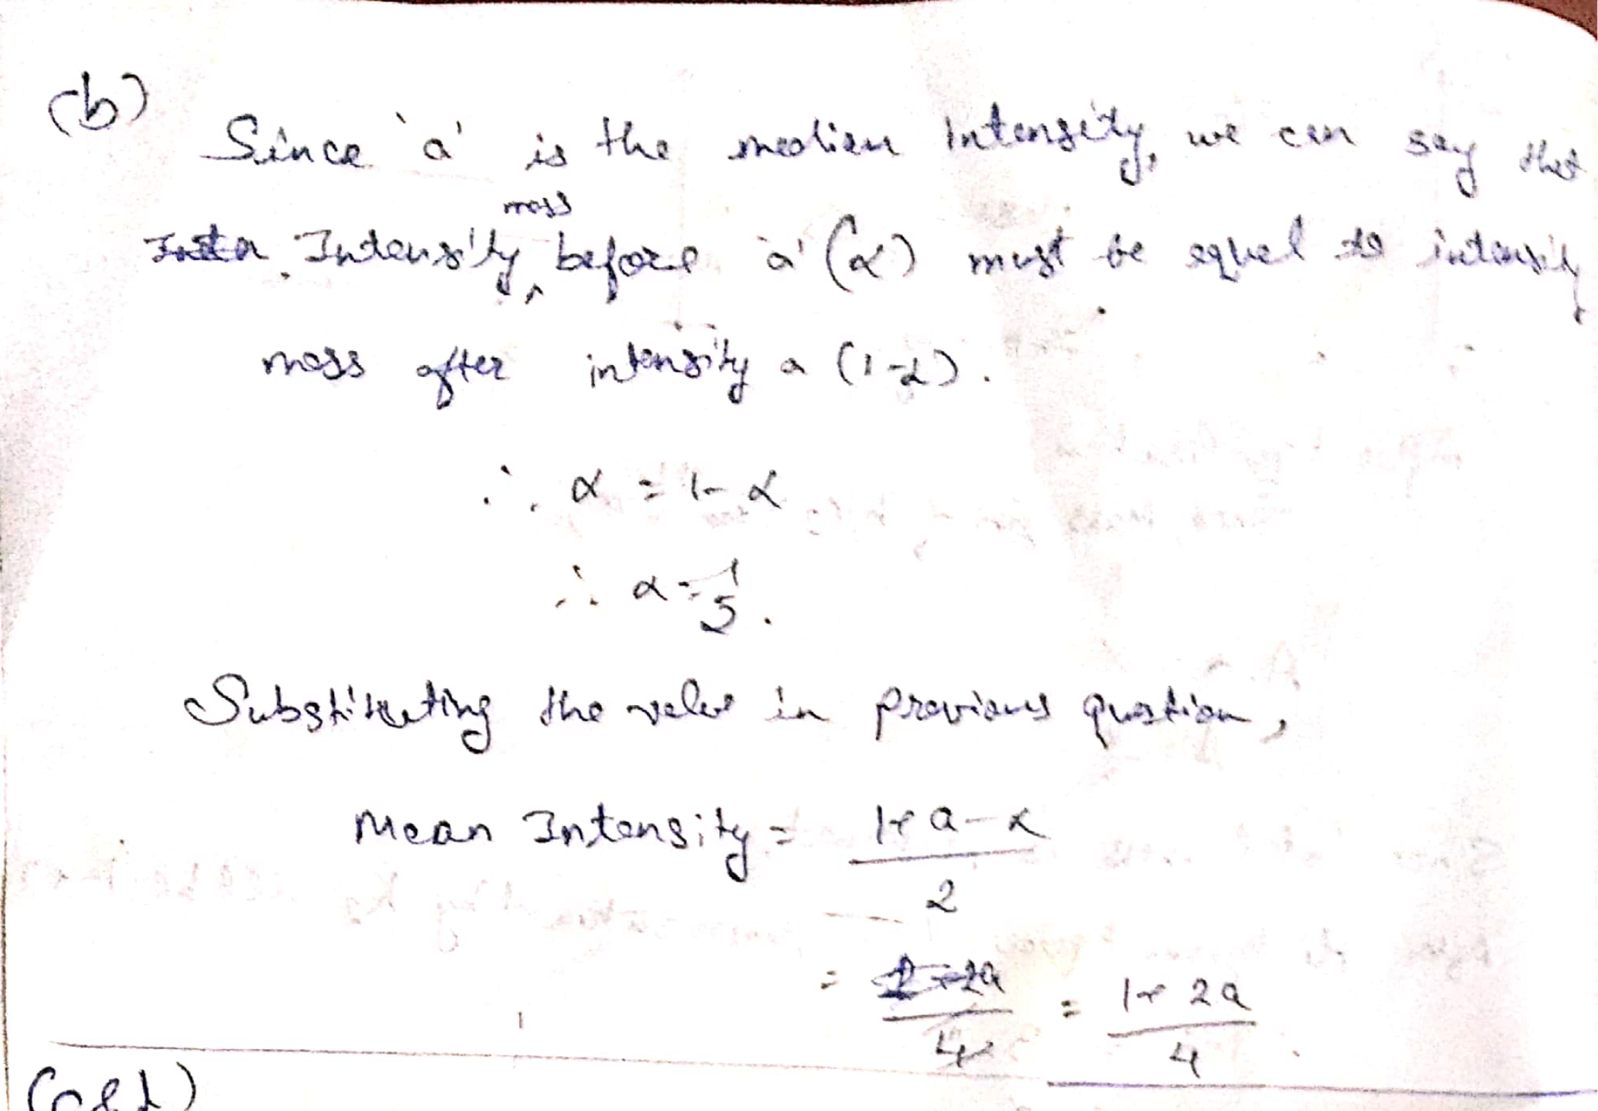 (b)
Since 'a' is the median Intensity, we can say that
mass
Intensity before 'a' (α) must be equal to intensity
mass after intensity a (1-α).
∴ α = 1-α
∴ α = 1/2.
Substituting the value in previous question,
Mean Intensity = (1+a-α)/2
= 2+2a/4 = (1+2a)/4
(c&d)